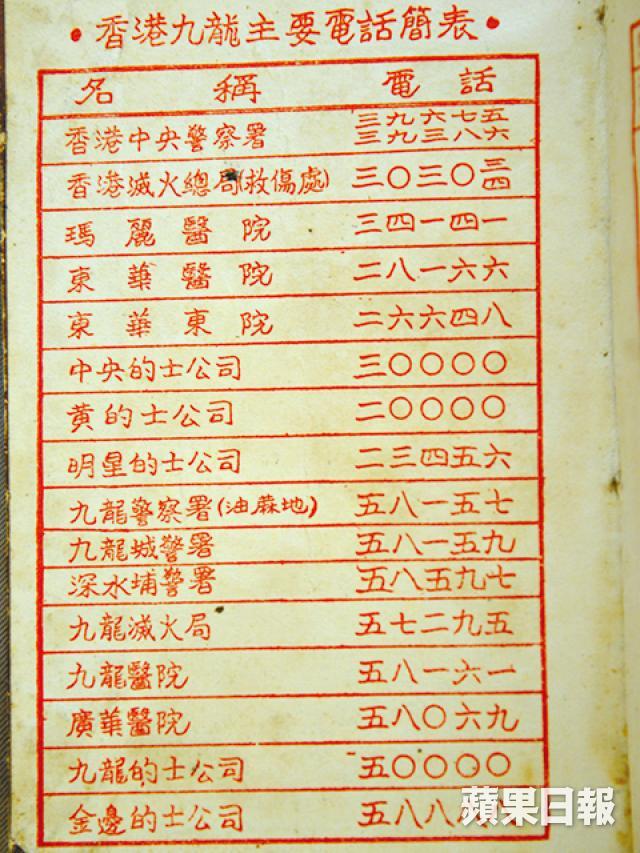 •香港九龍主要電話簡表•
名稱 電話
香港中央警察署 三九六七五
三九三八六
香港滅火總局(救傷處) 三〇三〇三
四
瑪麗醫院 三四一四一
東華醫院 二八一六六
東華東院 二六六四八
中央的士公司 三〇〇〇〇
黄的士公司 二〇〇〇〇
明星的士公司 二三四五六
九龍警察署(油蔴地) 五八一五七
九龍城警署 五八一五九
深水埔警署 五八五九七
九龍滅火局 五七二九五
九龍醫院 五八一六一
廣華醫院 五八〇六九
九龍的士公司 五〇〇〇〇
金邊的士公司 五八八
蘋果日報